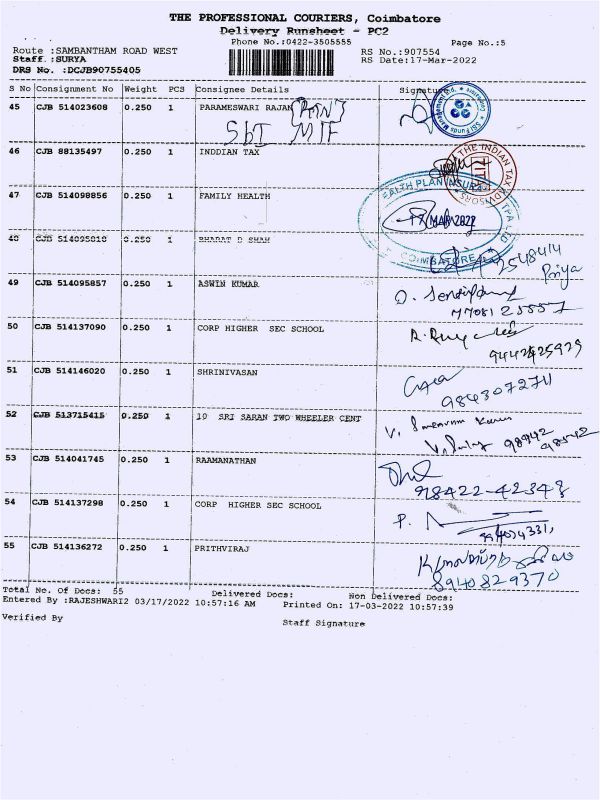 THE PROFESSIONAL COURIERS, Coimbatore
Delivery Runsheet - PC2
Phone No.:0422-3505555
Page No.:5
Route :SAMBANTHAM ROAD WEST
RS No.:907554
Staff.:SURYA
RS Date:17-Mar-2022
DRS No. :DCJB90755405
S No Consignment No Weight PCS Consignee Details Signature
45 CJB 514023608 0.250 1 PARAMESWARI RAJAN
SbI MTF
46 CJB 88135497 0.250 1 INDDIAN TAX
THE INDIAN TAX ADVISORS
47 CJB 514098856 0.250 1 FAMILY HEALTH
HEALTH PLAN INSURANCE TPA LTD
17 MAR 2022
COIMBATORE
48 CJB 514095818 0.250 1 BHARAT D SHAH
2548414
Priya
49 CJB 514095857 0.250 1 ASWIN KUMAR
50 CJB 514137090 0.250 1 CORP HIGHER SEC SCHOOL
51 CJB 514146020 0.250 1 SHRINIVASAN
9843072711
52 CJB 513715415 0.250 1 10 SRI SARAN TWO WHEELER CENT
98942
98542
53 CJB 514041745 0.250 1 RAAMANATHAN
98422-42348
54 CJB 514137298 0.250 1 CORP HIGHER SEC SCHOOL
P.
55 CJB 514136272 0.250 1 PRITHVIRAJ
8940829370
Total No. Of Docs: 55 Delivered Docs: Non Delivered Docs:
Entered By :RAJESHWARI2 03/17/2022 10:57:16 AM Printed On: 17-03-2022 10:57:39
Verified By
Staff Signature